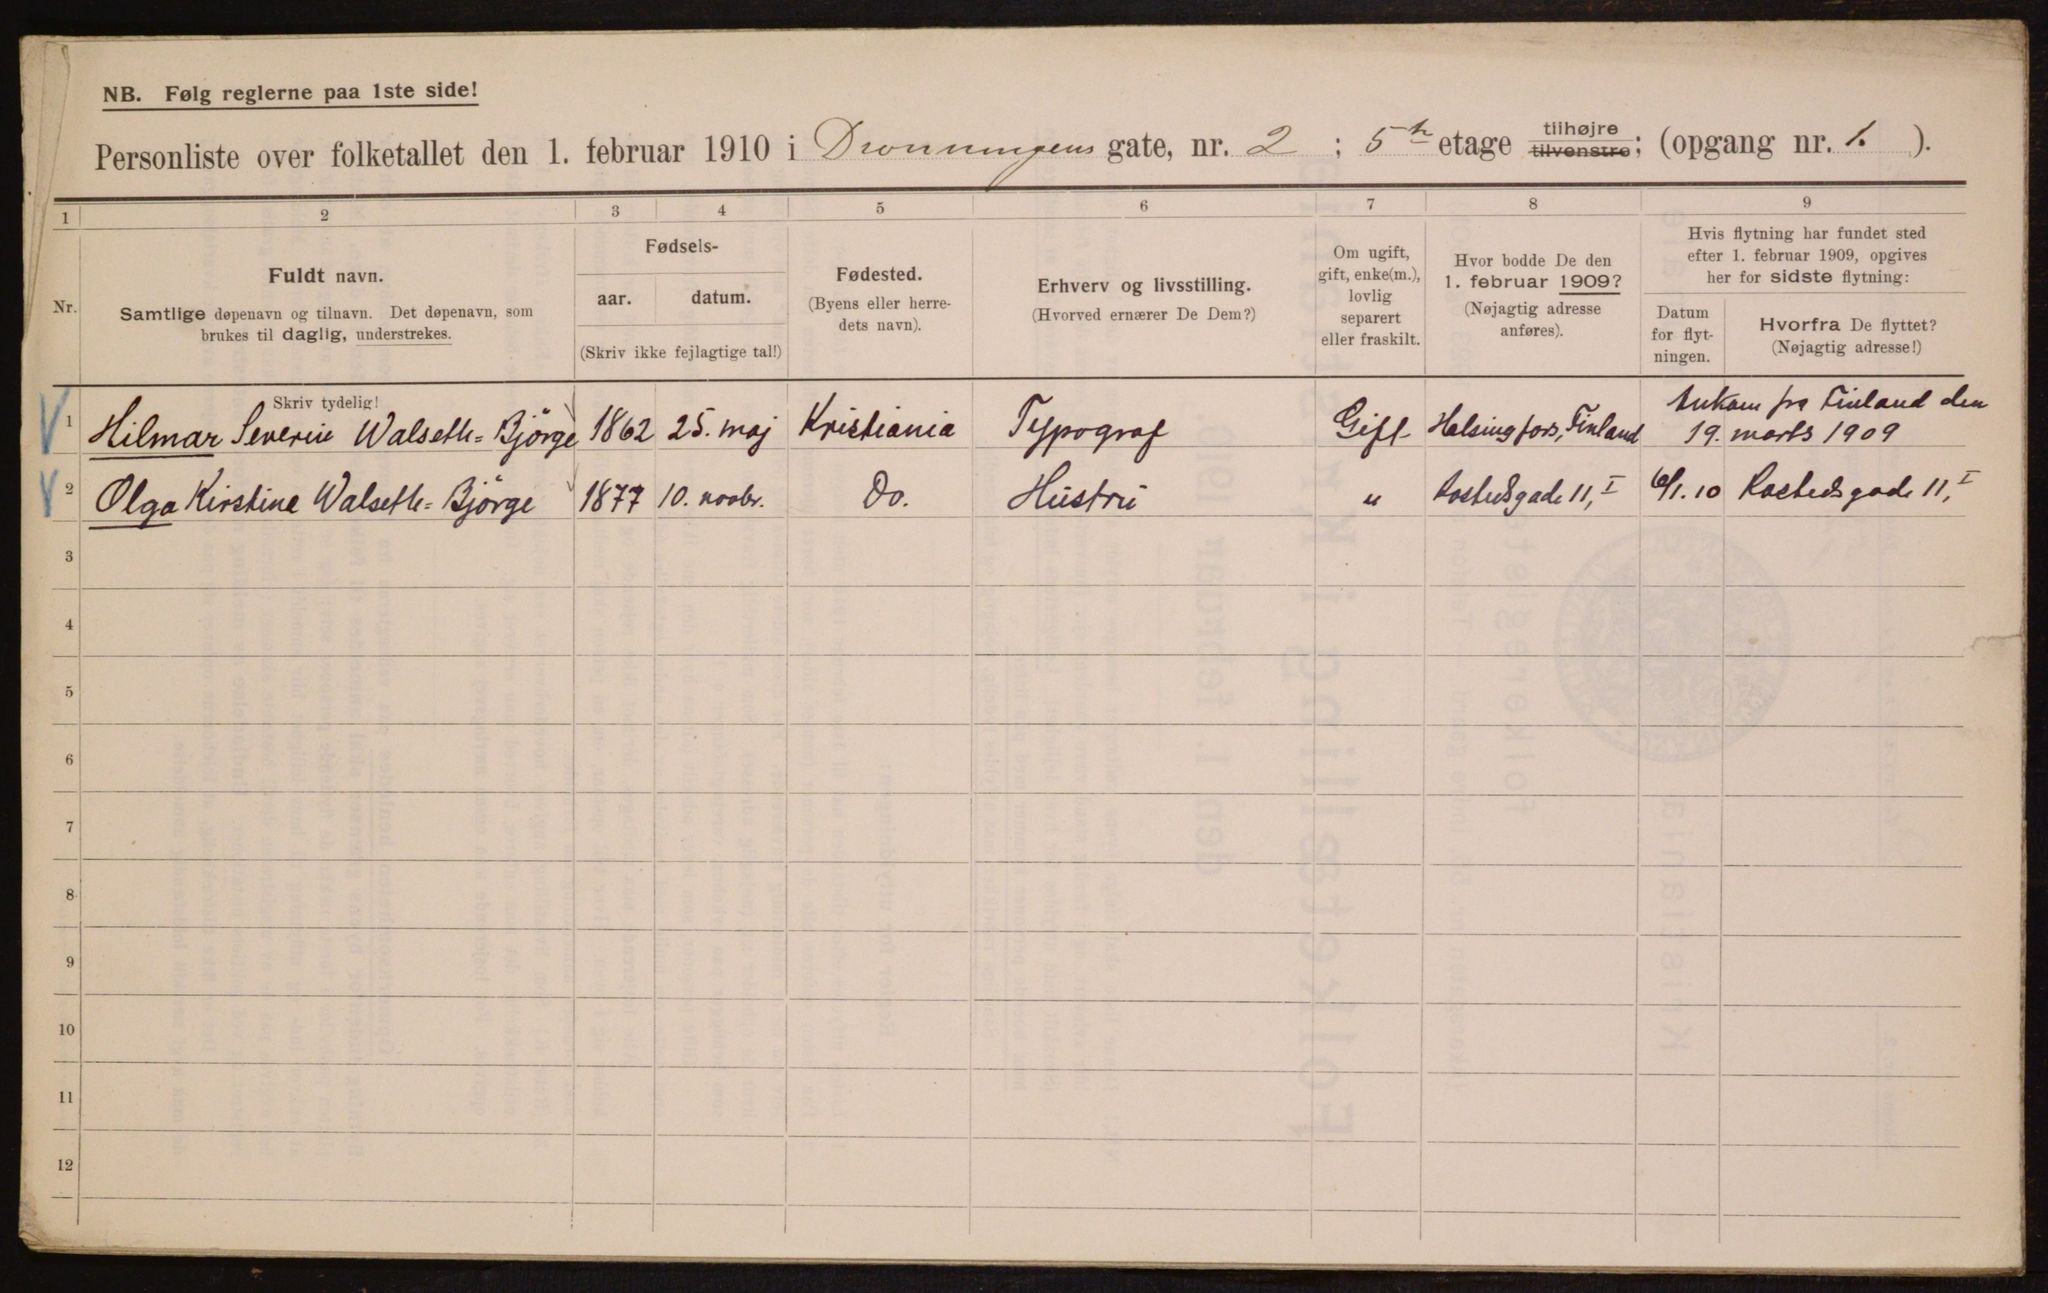 NB. Følg reglerne paa 1ste side!
Personliste over folketallet den 1. februar 1910 i Dronningens gate, nr. 2 ; 5te etage tilhøjre tilvenstre; (opgang nr. 1. ).
1 2 3 4 5 6 7 8 9
Nr.
Fuldt navn.
Samtlige døpenavn og tilnavn. Det døpenavn, som
brukes til daglig, understrekes.
Fødsels-
aar. datum.
(Skriv ikke fejlagtige tal!)
Fødested.
(Byens eller herre-
dets navn).
Erhverv og livsstilling.
(Hvorved ernærer De Dem?)
Om ugift,
gift, enke(m.),
lovlig
separert
eller fraskilt.
Hvor bodde De den
1. februar 1909?
(Nøjagtig adresse
anføres).
Hvis flytning har fundet sted
efter 1. februar 1909, opgives
her for sidste flytning:
Datum
for flyt-
ningen.
Hvorfra De flyttet?
(Nøjagtig adresse!)
Skriv tydelig!
1 Hilmar Severin Walseth=Bjørge 1862 25. maj Kristiania Typograf Gift Helsingfors, Finland Ankom fra Finland den
19. marts 1909
2 Olga Kirstine Walseth=Bjørge 1877 10. novbr. Do. Hustru " Rostedsgade 11, I 6/1.10 Rostedsgade 11, I
3
4
5
6
7
8
9
10
11
12